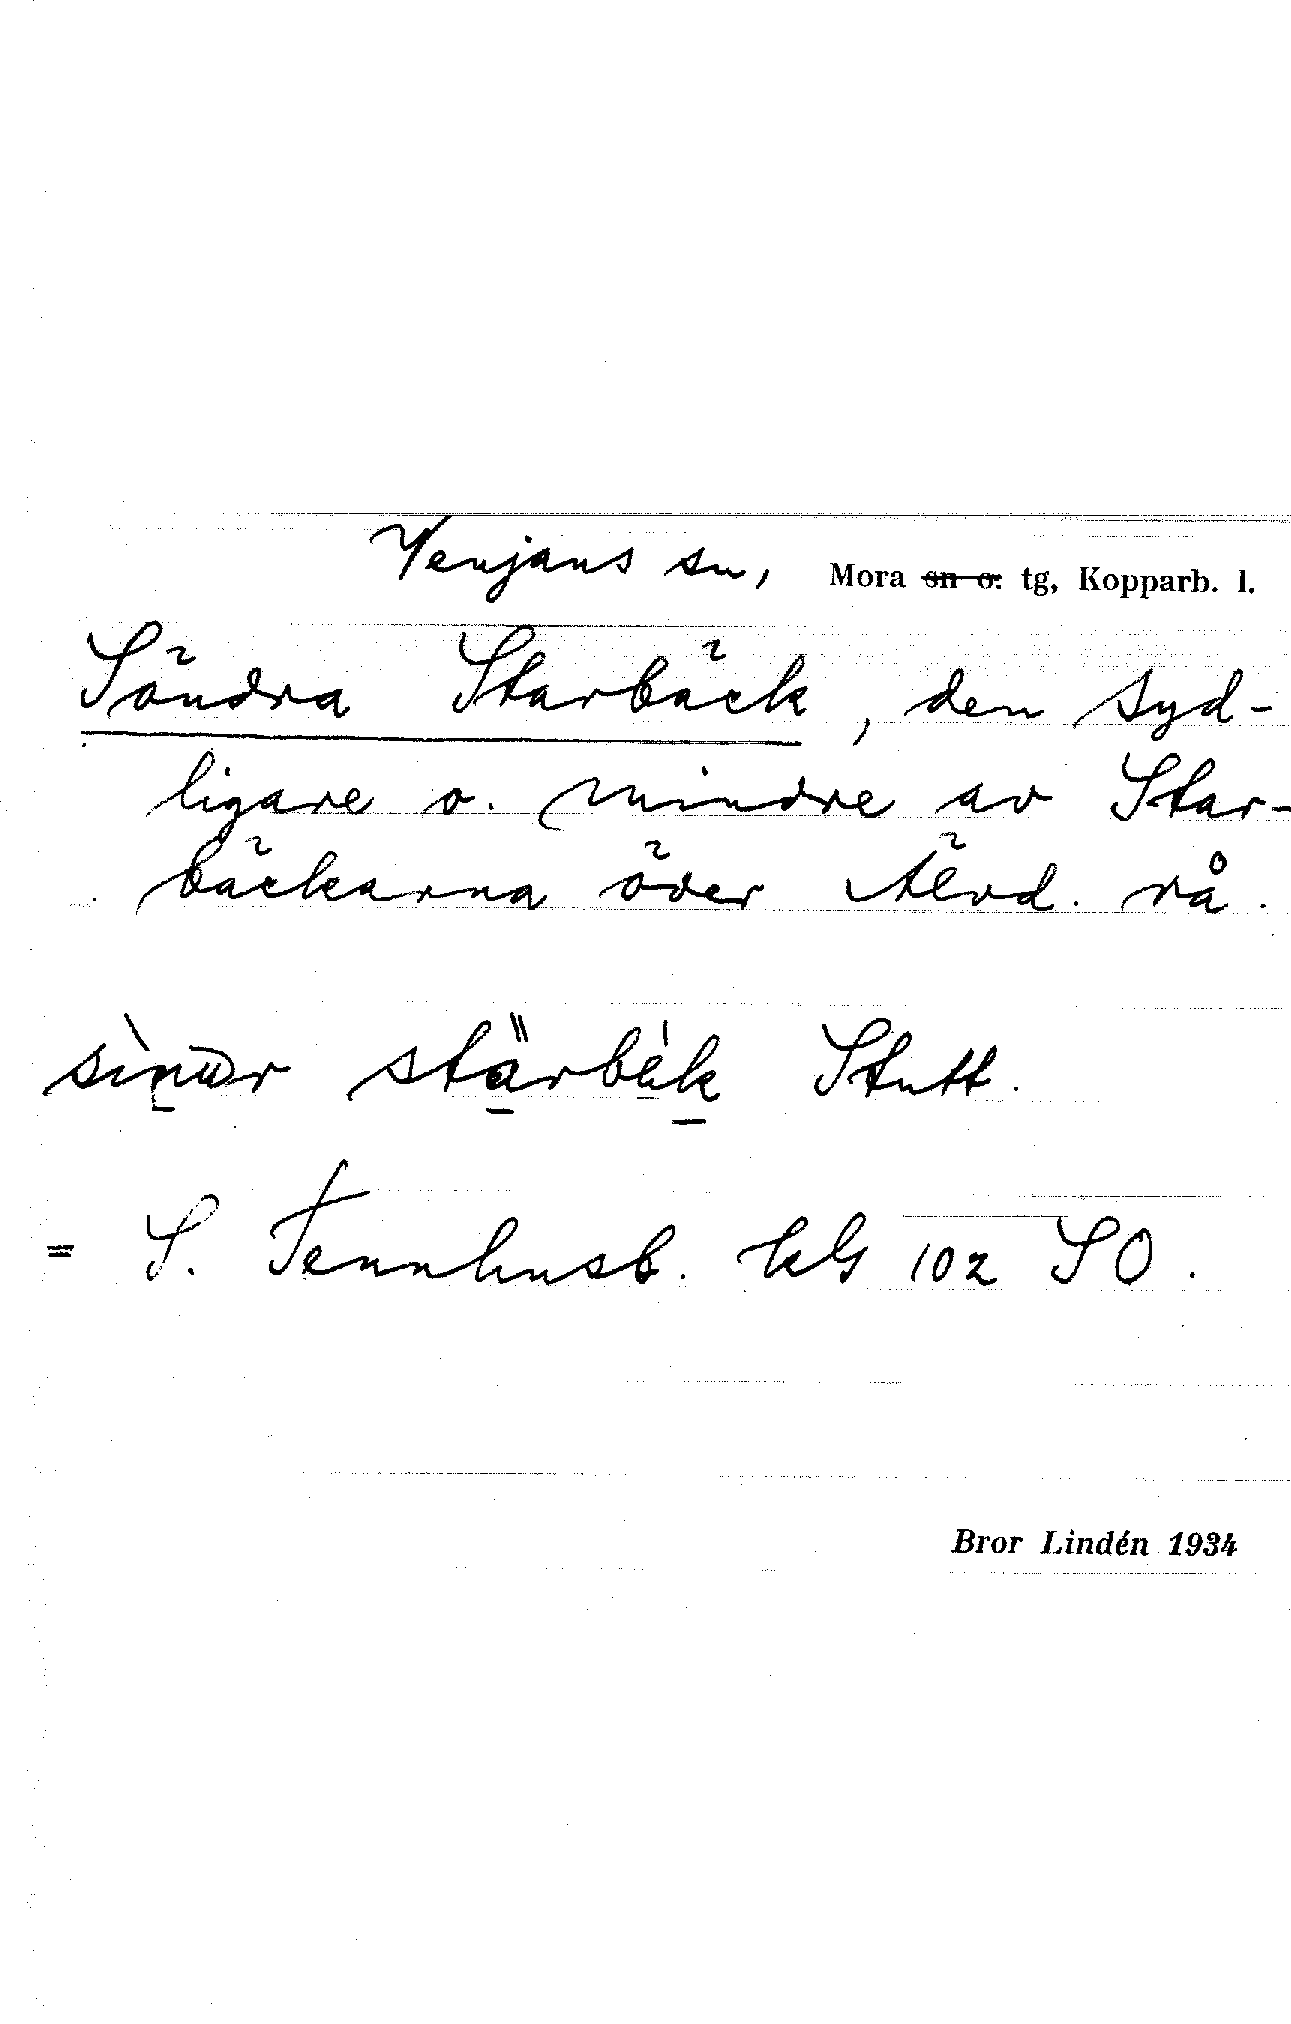 Venjans sn, Mora sn o. tg, Kopparb. l.
Söndra Starbäck, den syd-
ligare o. mindre av Star-
bäckarna över Älvd. rå.
Stutt.
= S. Tennhusb. kbl 102 SO.
Bror Lindén 1934